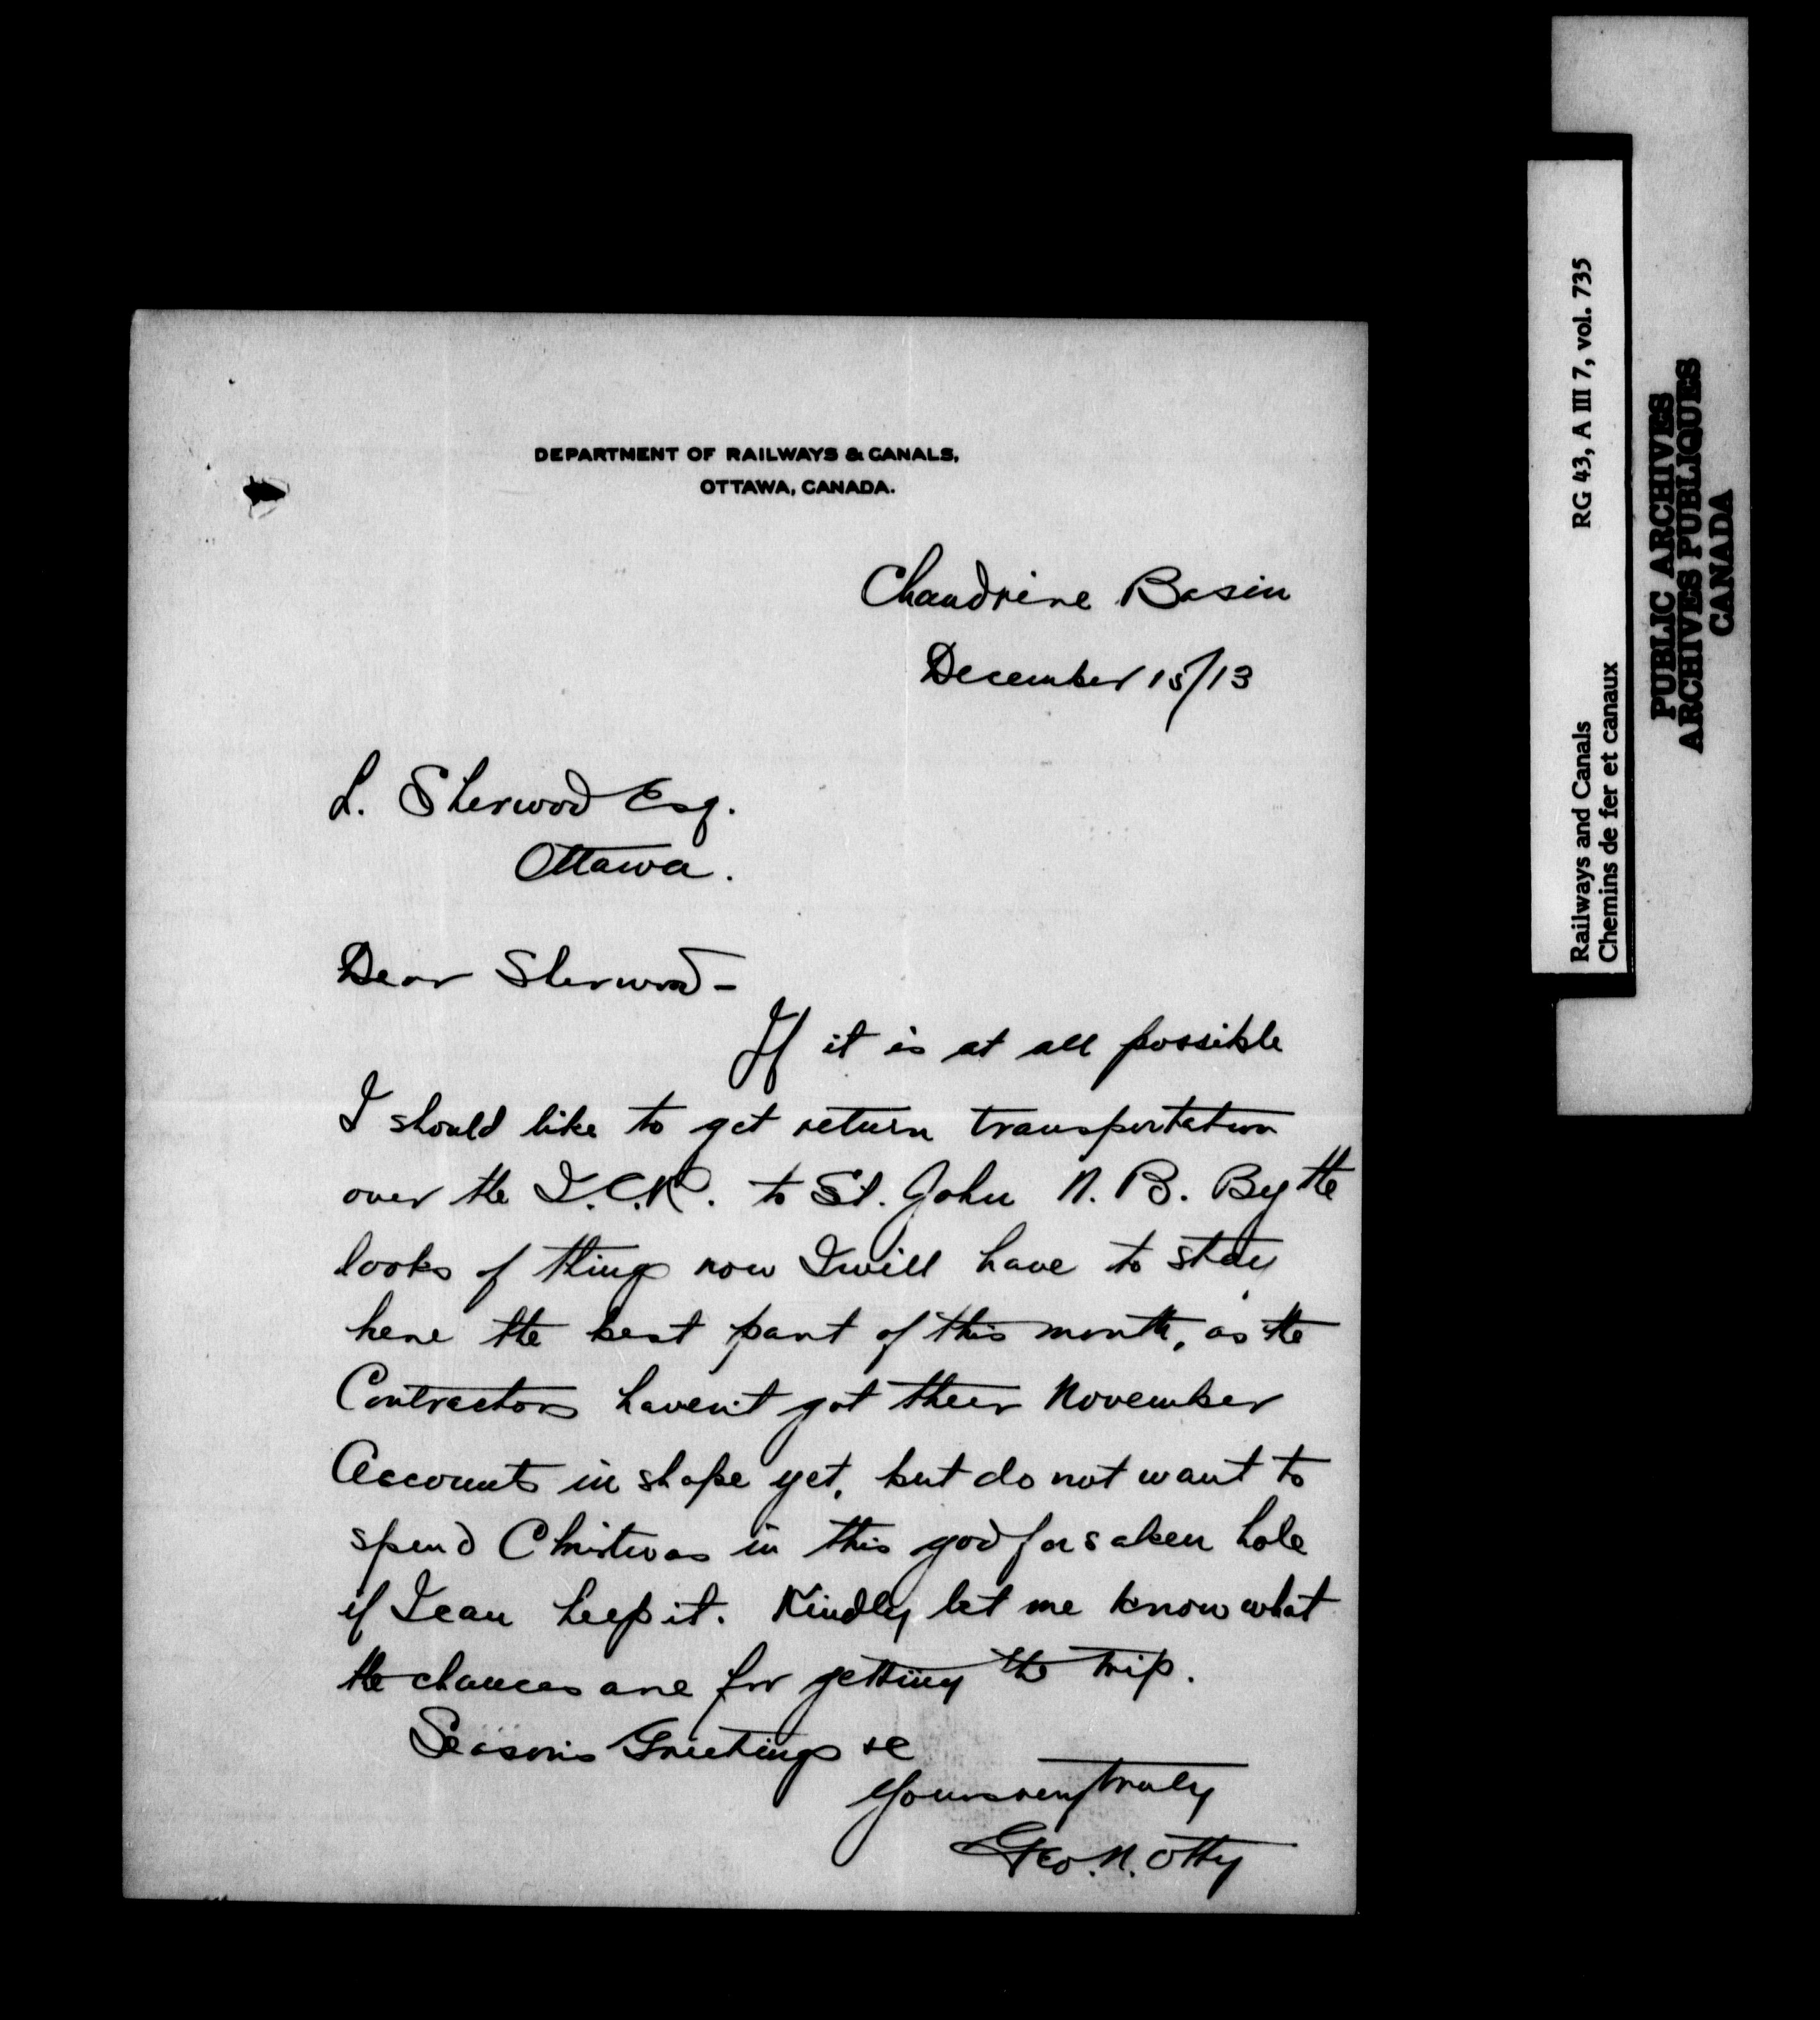 DEPARTMENT OF RAILWAYS & CANALS,
OTTAWA, CANADA.
Chaudiere Basin
December 15/13
L. Sherwood Esq.
Ottawa.
Dear Sherwood -
If it is at all possible
I should like to get return transportation
over the I.C.R. to St. John N. B. By the
looks of things now I will have to stay
here the best part of this month, as the
Contractors haven't got their November
Accounts in shape yet, but do not want to
spend Christmas in this god forsaken hole
if I can help it. Kindly let me know what
the chances are for getting the trip.
Season's Greetings &c
Yours very truly
Geo. N. Otty
RG 43, A III 7, vol. 735
Railways and Canals
Chemins de fer et canaux
PUBLIC ARCHIVES
ARCHIVES PUBLIQUES
CANADA